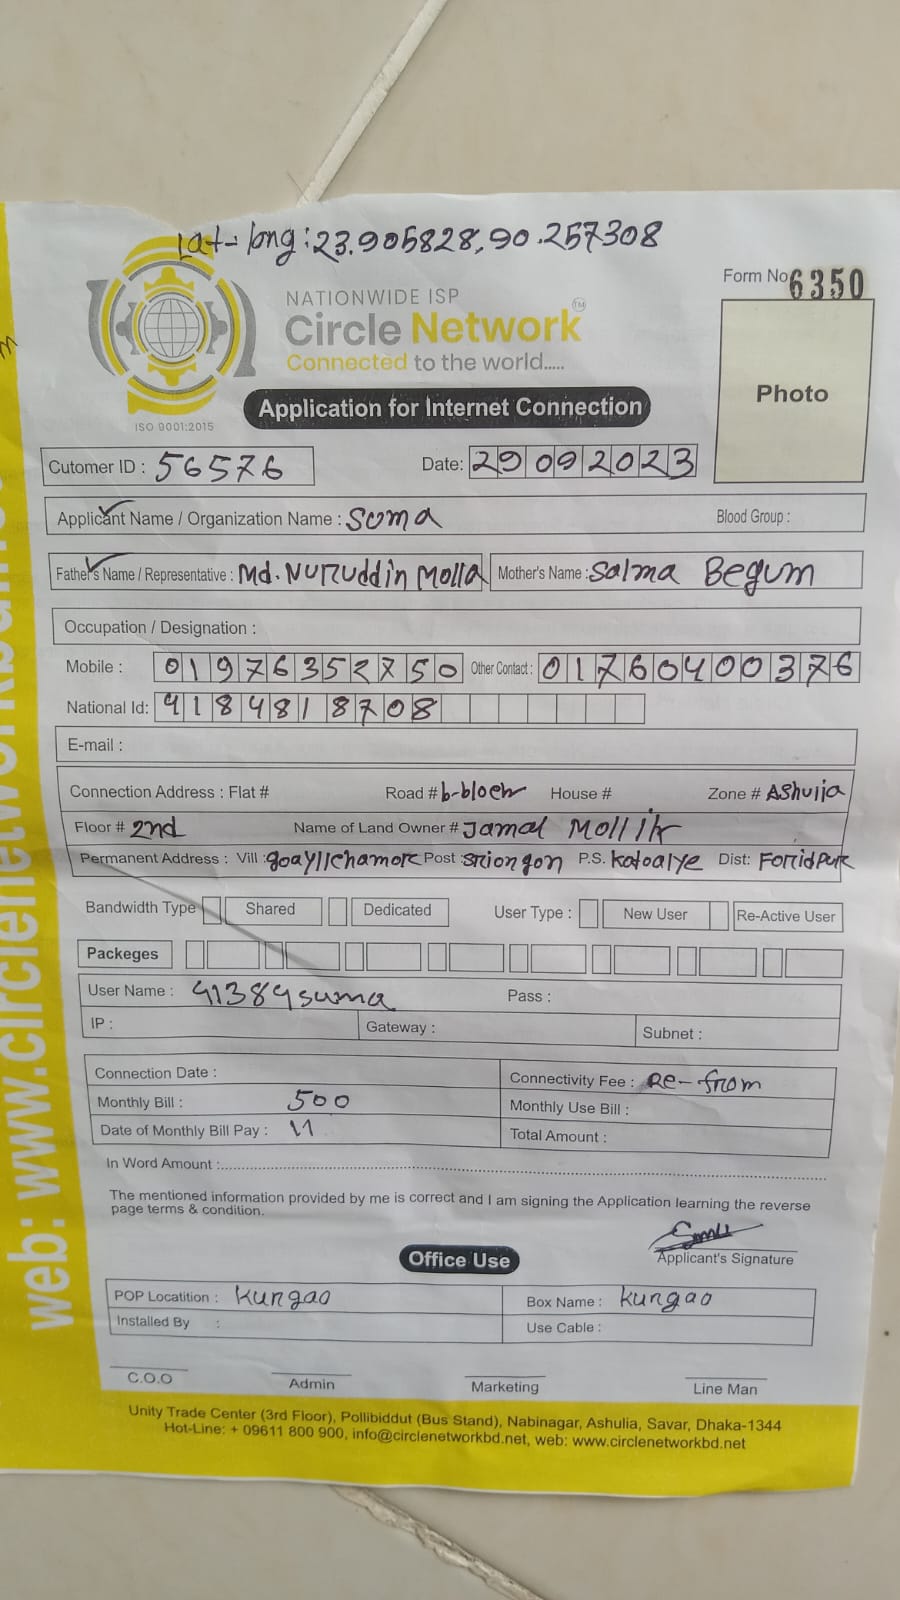 Lat-long:23.905828,90.257308
Form No 6350
NATIONWIDE ISP
Circle Network TM
Connected to the world.....
ISO 9001:2015
Application for Internet Connection
Photo
Cutomer ID : 56576 Date: 29092023
Applicant Name / Organization Name : Suma Blood Group :
Father's Name / Representative : Md. Nuruddin Molla Mother's Name : Salma Begum
Occupation / Designation :
Mobile : 01976352750 Other Contact : 01760400376
National Id: 4184818708
E-mail :
Connection Address : Flat # Road # b-bloch House # Zone # Ashulia
Floor # 2nd Name of Land Owner # Jamal Mollik
Permanent Address : Vill : Post : P.S. Dist: Forridpur
Bandwidth Type Shared Dedicated User Type : New User Re-Active User
Packeges
User Name : 41384suma Pass :
IP : Gateway : Subnet :
Connection Date : Connectivity Fee : Re-from
Monthly Bill : 500 Monthly Use Bill :
Date of Monthly Bill Pay : 11 Total Amount :
In Word Amount :
The mentioned information provided by me is correct and I am signing the Application learning the reverse
page terms & condition.
Applicant's Signature
Office Use
POP Locatition : Kungao Box Name : Kungao
Installed By : Use Cable :
C.O.O Admin Marketing Line Man
Unity Trade Center (3rd Floor), Pollibiddut (Bus Stand), Nabinagar, Ashulia, Savar, Dhaka-1344
Hot-Line: + 09611 800 900, info@circlenetworkbd.net, web: www.circlenetworkbd.net